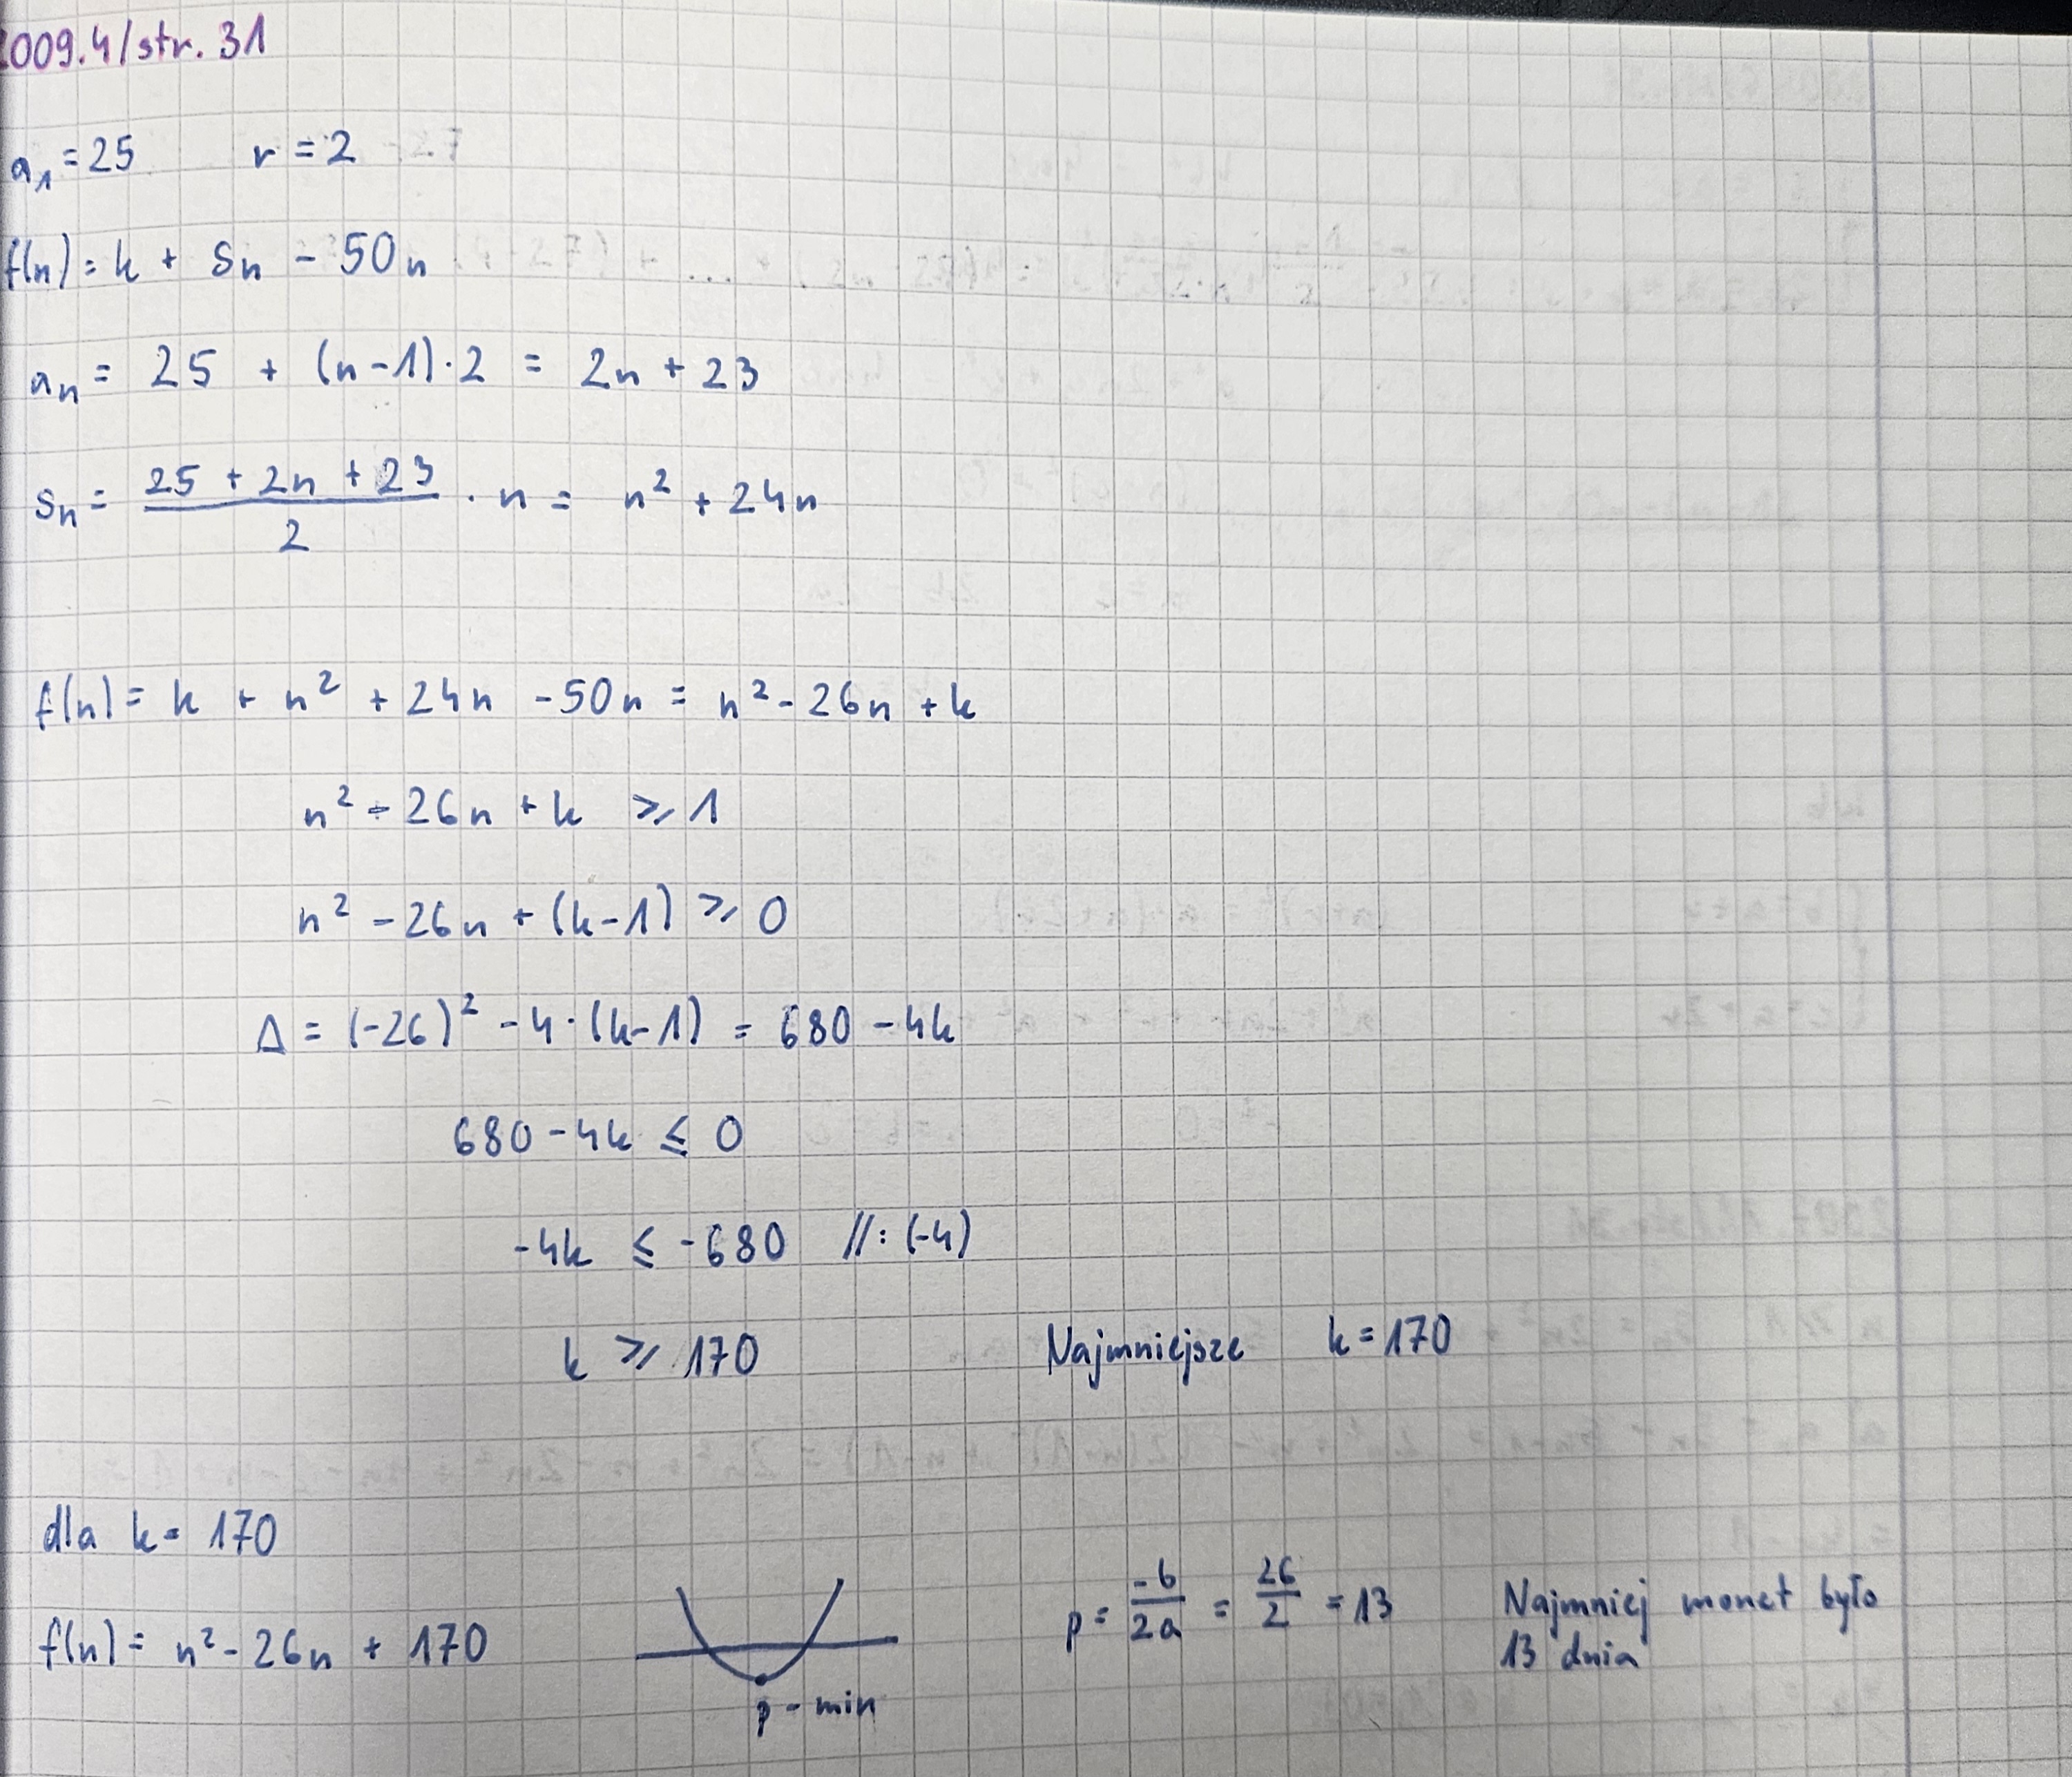 009.4/str. 31
a₁ = 25 r = 2
f(n) = k + Sn - 50n
an = 25 + (n-1)·2 = 2n + 23
Sn = (25 + 2n + 23)/2 · n = n² + 24n
f(n) = k + n² + 24n - 50n = n² - 26n + k
n² - 26n + k ⩾ 1
n² - 26n + (k-1) ⩾ 0
Δ = (-26)² - 4·(k-1) = 680 - 4k
680 - 4k ⩽ 0
-4k ⩽ -680 //:(-4)
k ⩾ 170 Najmniejsze k = 170
dla k = 170
f(n) = n² - 26n + 170
p - min
p = -b/2a = 26/2 = 13
Najmniej monet było
13 dnia